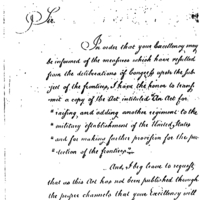 Sir.
In order that your Excellency may
be informed of the measures which have resulted
from the deliberations of Congress upon the sub-
ject of the frontiers, I have the honor to trans-
mit a copy of the Act intituled "An Act for
"raising, and adding another regiment to the
"military establishment of the United States
"and for making further provision for the pro-
"tection of the frontiers."
And, I beg leave to request
that as this Act has not been published through
the proper channels that your Excellency will